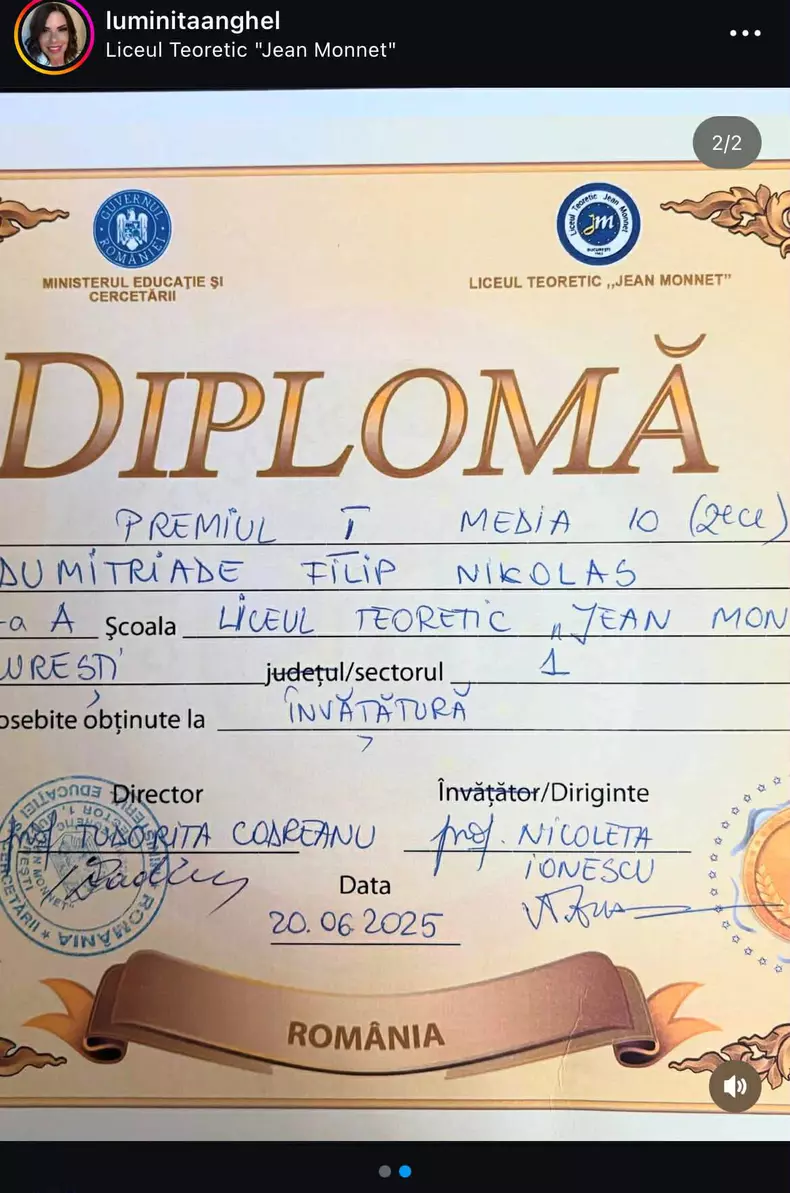 luminitaanghel
Liceul Teoretic "Jean Monnet"
2/2
GUVERNUL ROMÂNIEI
Liceul Teoretic Jean Monnet
jm
BUCUREȘTI
MINISTERUL EDUCAȚIE ȘI
CERCETĂRII
LICEUL TEORETIC ,,JEAN MONNET”
DIPLOMĂ
PREMIUL I MEDIA 10 (zece)
DUMITRIADE FILIP NIKOLAS
-a A Școala LICEUL TEORETIC „JEAN MON
URESTI județul/sectorul 1
osebite obținute la ÎNVĂȚĂTURĂ
Director Învățător/Diriginte
prof. TUDORIȚA CODREANU prof. NICOLETA
IONESCU
Data
20.06.2025
ROMÂNIA
ROMÂNIA